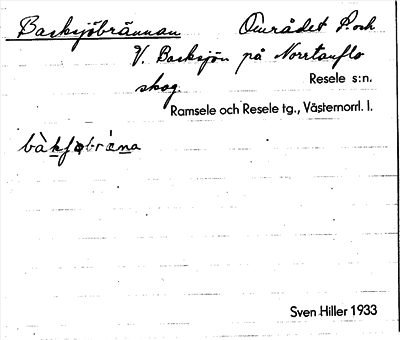 Backsjöbrännan Området S. och
V. Backsjön på Norrtanflo
skog. Resele s:n.
Ramsele och Resele tg., Västernorrl. l.
Sven Hiller 1933